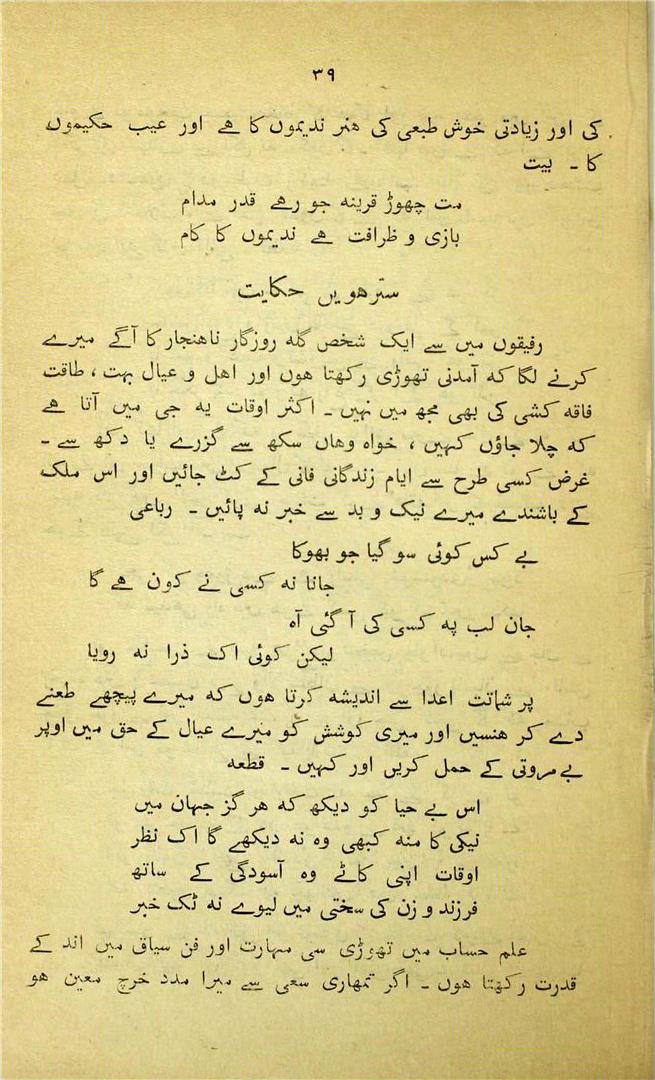 ۳۹
کی اور زیادتی خوش طبعی کی هنر ندیموں کا هے اور عیب حکیموں
کا ۔ بیت
مت چھوڑ قرینه جو رهے قدر مدام
بازی و ظرافت هے ندیموں کا کام
سترهویں حکایت
رفیقوں میں سے ایک شخص گله روزگار ناهنجار کا آگے میرے
کرنے لگا که آمدنی تھوڑی رکھتا هوں اور اهل و عیال بہت ، طاقت
فاقه کشی کی بھی مجھ میں نہیں ۔ اکثر اوقات یه جی میں آتا هے
که چلا جاؤں کہیں ، خواه وهاں سکھ سے گزرے یا دکھ سے ۔
غرض کسی طرح سے ایام زندگانی فانی کے کٹ جائیں اور اس ملک
کے باشندے میرے نیک و بد سے خبر نه پائیں ۔ رباعی
بے کس کوئی سو گیا جو بھوکا
جانا نه کسی نے کون هے گا
جان لب په کسی کی آ گئی آه
لیکن کوئی اک ذرا نه رویا
پر شماتت اعدا سے اندیشه کرتا هوں که میرے پیچھے طعنے
دے کر هنسیں اور میری کوشش کو میرے عیال کے حق میں اوپر
بے مروتی کے حمل کریں اور کہیں ۔ قطعه
اس بے حیا کو دیکھ که هر گز جہان میں
نیکی کا منه کبھی وه نه دیکھے گا اک نظر
اوقات اپنی کاٹے وه آسودگی کے ساتھ
فرزند و زن کی سختی میں لیوے نه ٹک خبر
علم حساب میں تھوڑی سی مہارت اور فن سیاق میں اند کے
قدرت رکھتا هوں ۔ اگر تمھاری سعی سے میرا مدد خرچ معین هو